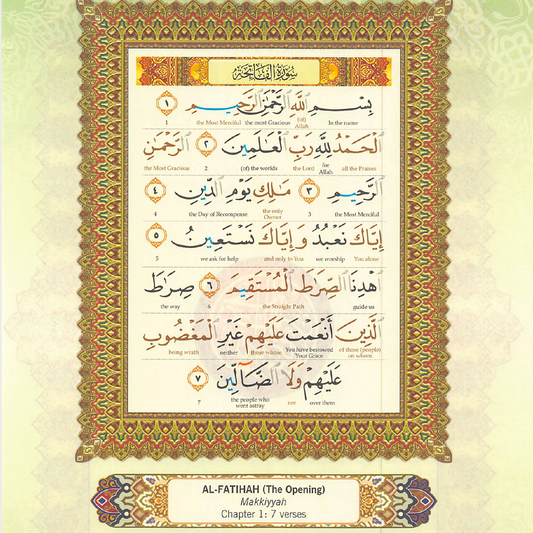 سُورَةُ الْفَاتِحَةِ
بِسْمِ اللَّهِ الرَّحْمَٰنِ الرَّحِيمِ ١
In the name (of) Allah the most Gracious the Most Merciful 1
الْحَمْدُ لِلَّهِ رَبِّ الْعَالَمِينَ ٢ الرَّحْمَٰنِ
all the Praises for Allah the Lord (of) the worlds 2 the Most Gracious
الرَّحِيمِ ٣ مَالِكِ يَوْمِ الدِّينِ ٤
the Most Merciful 3 the only Owner the Day of Recompense 4
إِيَّاكَ نَعْبُدُ وَإِيَّاكَ نَسْتَعِينُ ٥
You alone we worship and only to You we ask for help 5
اهْدِنَا الصِّرَاطَ الْمُسْتَقِيمَ ٦ صِرَاطَ
guide us the Straight Path 6 the way
الَّذِينَ أَنْعَمْتَ عَلَيْهِمْ غَيْرِ الْمَغْضُوبِ
of those (people) on whom You have bestowed Your Grace those whose neither being wrath
عَلَيْهِمْ وَلَا الضَّالِّينَ ٧
over them nor the people who went astray 7
AL-FATIHAH (The Opening)
Makkiyyah
Chapter 1: 7 verses